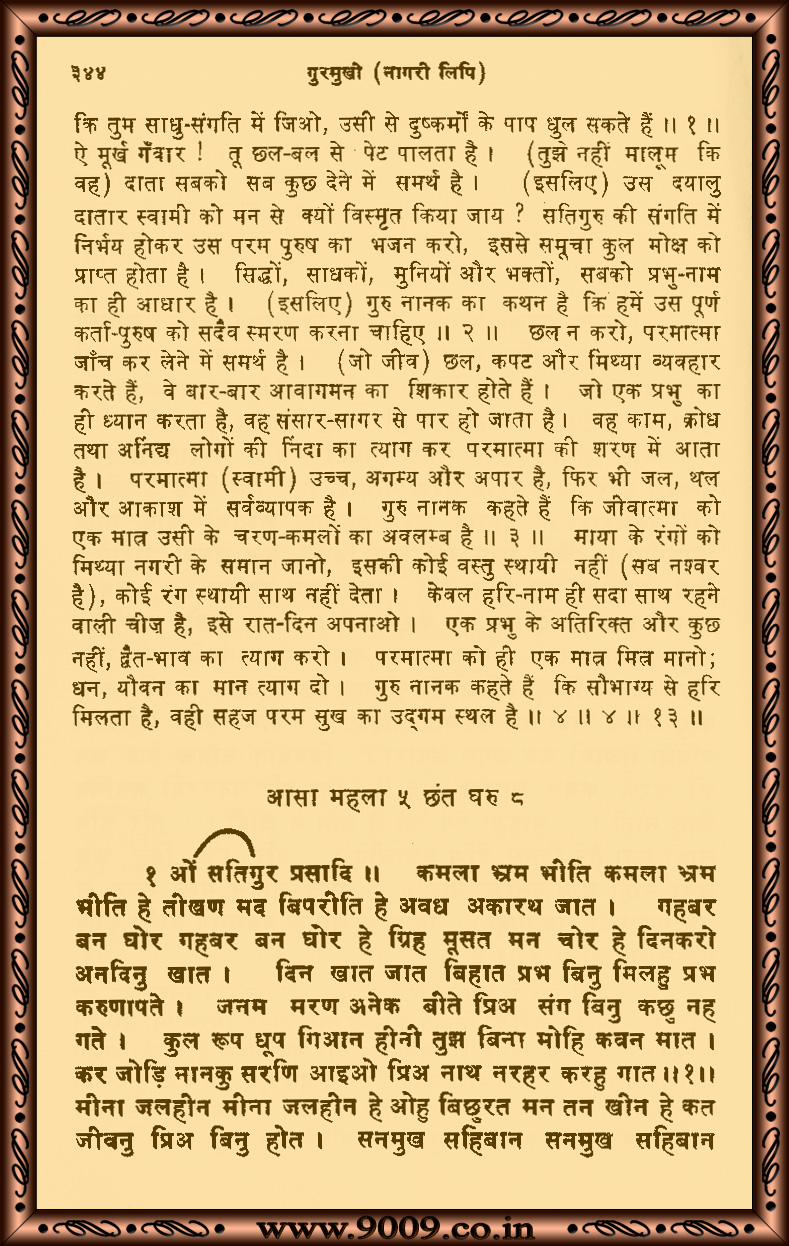 ३४४ गुरमुखी (नागरी लिपि)
कि तुम साधु-संगति में जिओ, उसी से दुष्कर्मों के पाप धुल सकते हैं ॥ १ ॥
ऐ मूर्ख गँवार ! तू छल-बल से पेट पालता है । (तुझे नहीं मालूम कि
वह) दाता सबको सब कुछ देने में समर्थ है । (इसलिए) उस दयालु
दातार स्वामी को मन से क्यों विस्मृत किया जाय ? सतिगुरु की संगति में
निर्भय होकर उस परम पुरुष का भजन करो, इससे समूचा कुल मोक्ष को
प्राप्त होता है । सिद्धों, साधकों, मुनियों और भक्तों, सबको प्रभु-नाम
का ही आधार है । (इसलिए) गुरु नानक का कथन है कि हमें उस पूर्ण
कर्ता-पुरुष को सदैव स्मरण करना चाहिए ॥ २ ॥ छल न करो, परमात्मा
जाँच कर लेने में समर्थ है । (जो जीव) छल, कपट और मिथ्या व्यवहार
करते हैं, वे बार-बार आवागमन का शिकार होते हैं । जो एक प्रभु का
ही ध्यान करता है, वह संसार-सागर से पार हो जाता है । वह काम, क्रोध
तथा अनिंद्य लोगों की निंदा का त्याग कर परमात्मा की शरण में आता
है । परमात्मा (स्वामी) उच्च, अगम्य और अपार है, फिर भी जल, थल
और आकाश में सर्वव्यापक है । गुरु नानक कहते हैं कि जीवात्मा को
एक मात्र उसी के चरण-कमलों का अवलम्ब है ॥ ३ ॥ माया के रंगों को
मिथ्या नगरी के समान जानो, इसकी कोई वस्तु स्थायी नहीं (सब नश्वर
है), कोई रंग स्थायी साथ नहीं देता । केवल हरि-नाम ही सदा साथ रहने
वाली चीज़ है, इसे रात-दिन अपनाओ । एक प्रभु के अतिरिक्त और कुछ
नहीं, द्वैत-भाव का त्याग करो । परमात्मा को ही एक मात्र मित्र मानो;
धन, यौवन का मान त्याग दो । गुरु नानक कहते हैं कि सौभाग्य से हरि
मिलता है, वही सहज परम सुख का उद्गम स्थल है ॥ ४ ॥ ४ ॥ १३ ॥
आसा महला ५ छंत घरु ८
१ ओं सतिगुर प्रसादि ॥ कमला भ्रम भीति कमला भ्रम
भीति हे तीखण मद बिपरीति हे अवध अकारथ जात । गहबर
बन घोर गहबर बन घोर हे ग्रिह मूसत मन चोर हे दिनकरो
अनदिनु खात । दिन खात जात बिहात प्रभ बिनु मिलहु प्रभ
करुणापते । जनम मरण अनेक बीते प्रिअ संग बिनु कछु नह
गते । कुल रूप धूप गिआन हीनी तुझ बिना मोहि कवन मात ।
कर जोड़ि नानकु सरणि आइओ प्रिअ नाथ नरहर करहु गात ॥१॥
मीना जलहीन मीना जलहीन हे ओहु बिछुरत मन तन खीन हे कत
जीवनु प्रिअ बिनु होत । सनमुख सहिबान सनमुख सहिबान
www.9009.co.in